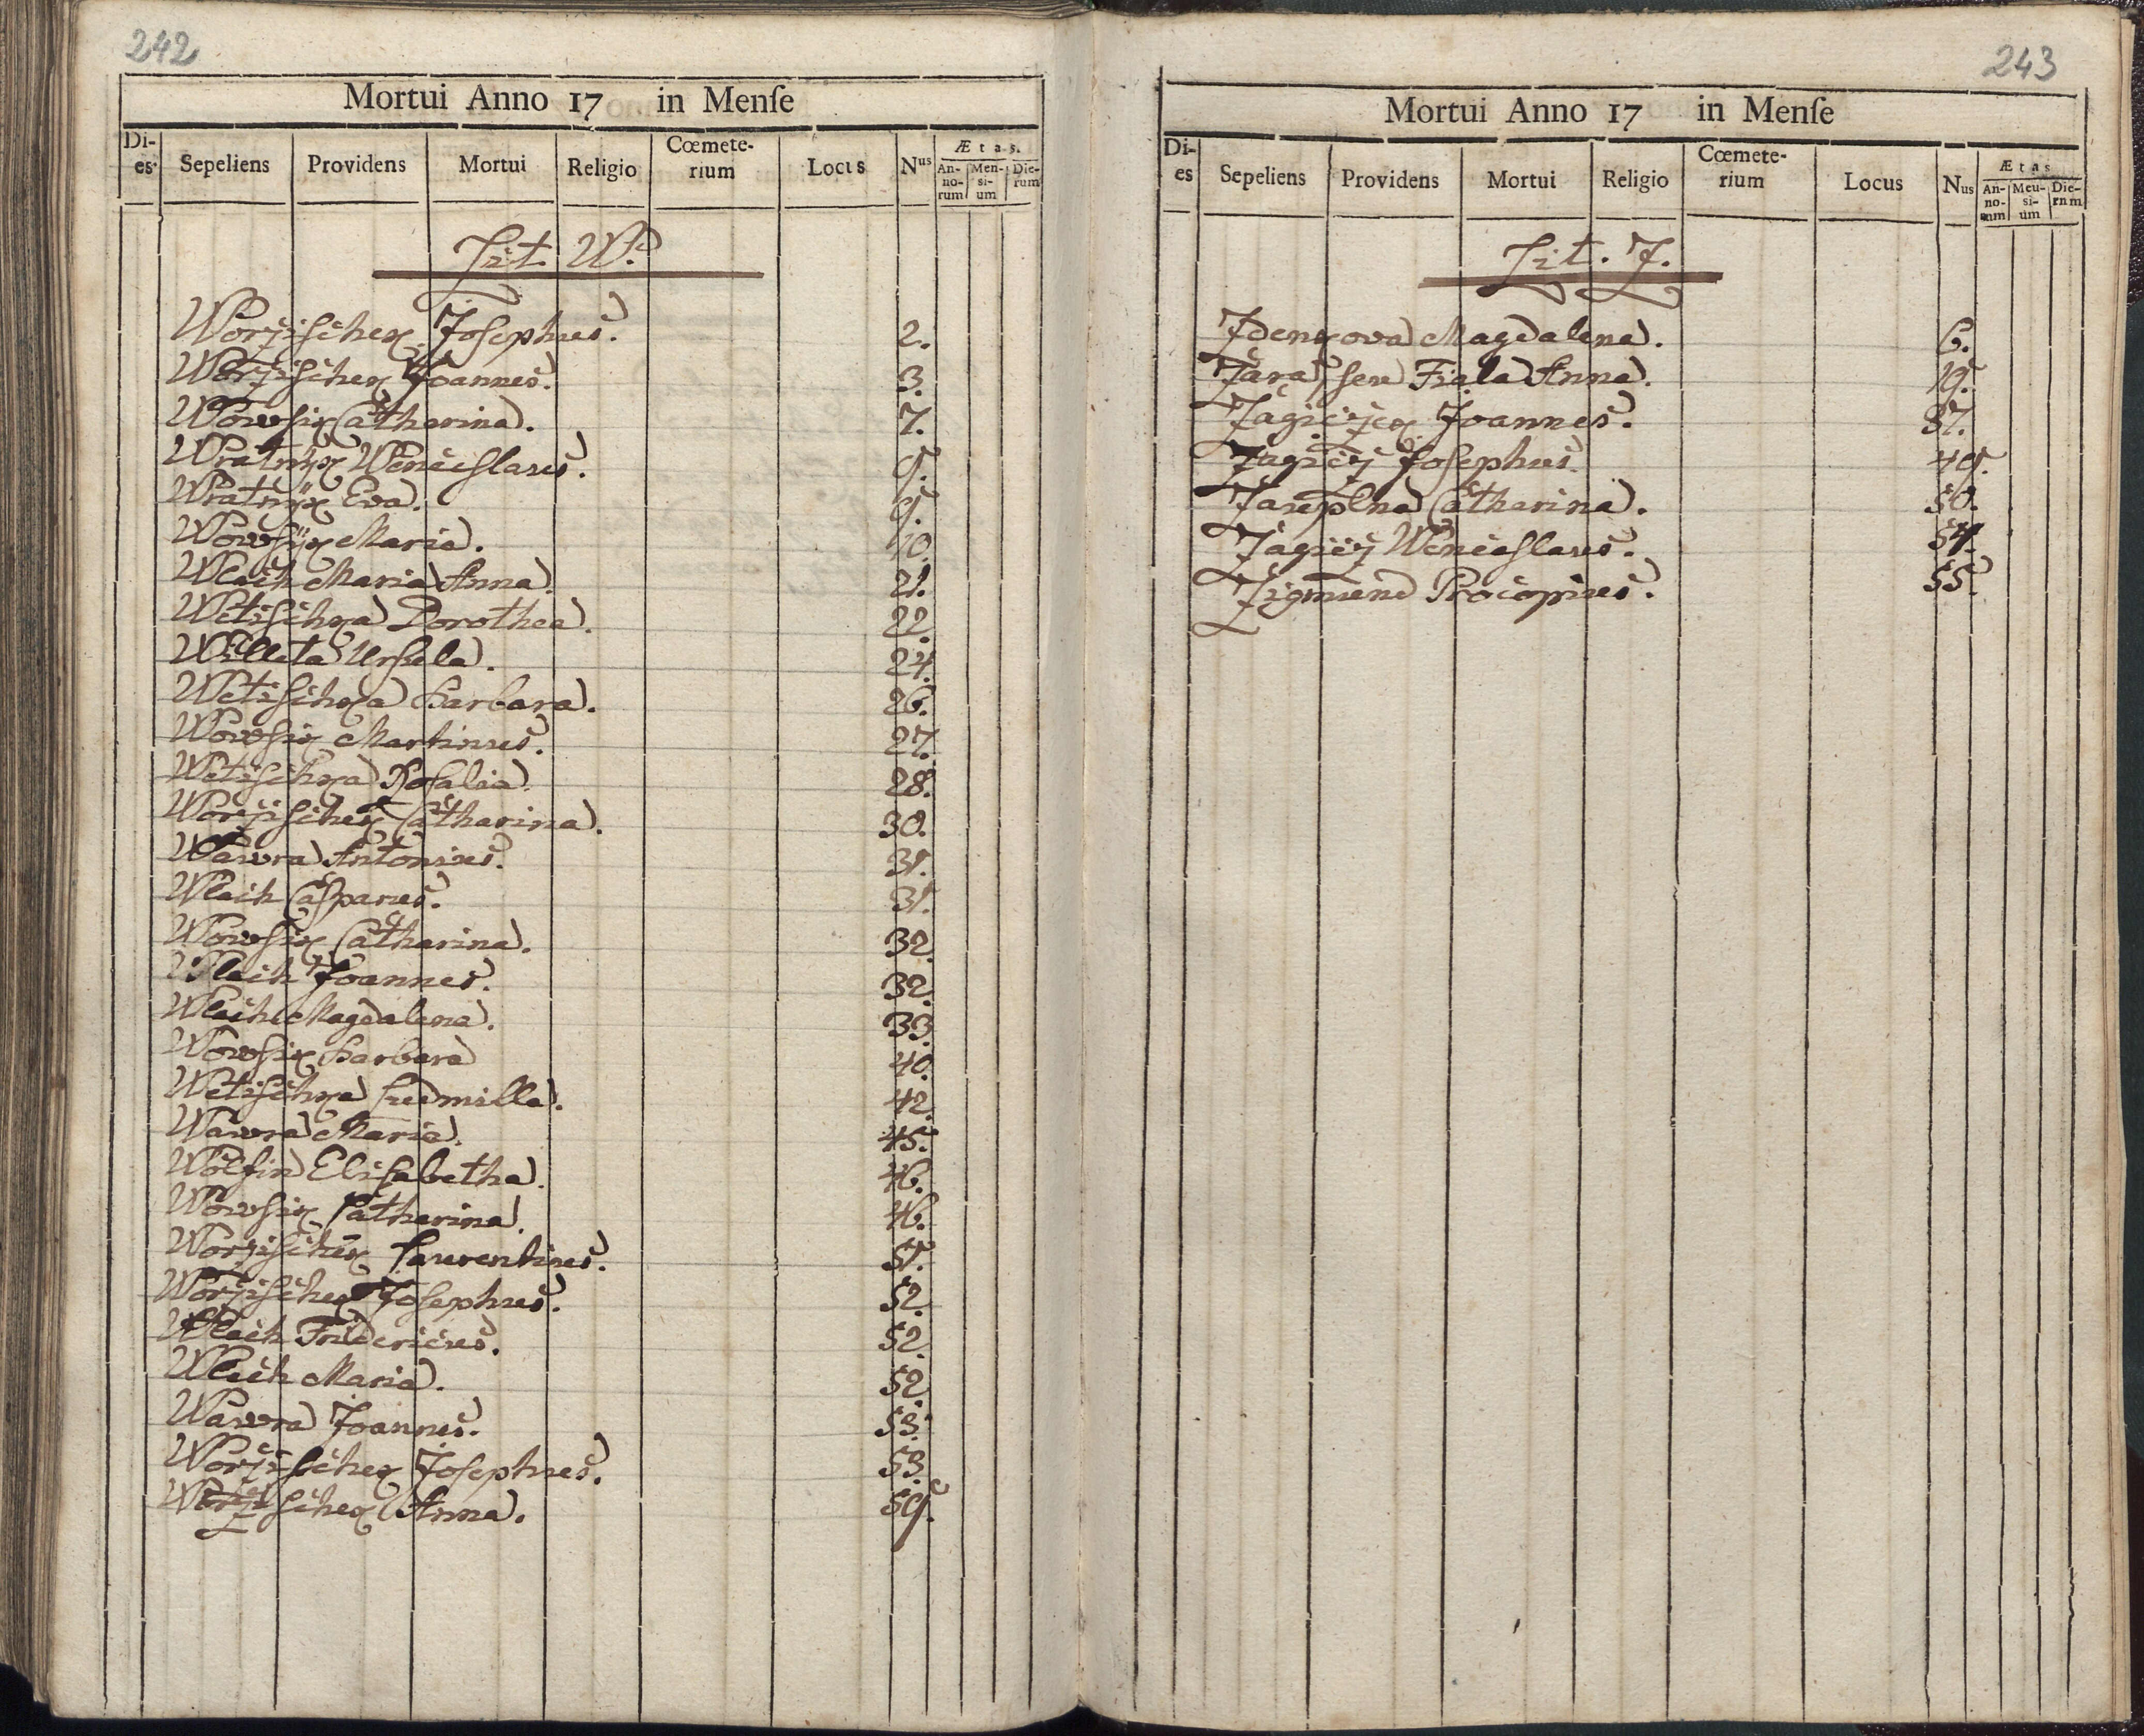 242
Mortui Anno 17 in Menſe
Di-es. Sepeliens Providens Mortui Religio Cœmete-rium Locus Nus Ætas. An-no-rum Men-si-um Die-rum
Lit. W.
Worzischek Josephus. 2.
Worzischek Joannes. 3.
Wowsik Catharina. 7.
Wratnÿk Wenceslaus. 9.
Wratnÿk Eva. 9.
Wowsÿk Maria. 10.
Wlach Maria Anna. 21.
Wetischka Dorothea. 22.
Willeta Ursula. 24.
Wetischka Barbara. 26.
Wowsik Martinus. 27.
Wetischka Rosalia. 28.
Worzischek Catharina. 30.
Wawra Antonius. 31.
Wlach Casparus. 31.
Wowsik Catharina. 32.
Wlach Joannes. 32.
Wlach Magdalena. 33.
Wowsik Barbara 40.
Wetischka Ludmilla. 42.
Wawra Maria. 45.
Wolfin Elisabetha. 46.
Wowsik Catharina. 46.
Worzischek Laurentius. 51.
Worzischek Josephus. 52.
Wlach Fridericus. 52.
Wlach Maria. 52.
Wawra Joannes. 53.
Worzischek Josephus. 53.
Worzischek Anna. 59.
243
Mortui Anno 17 in Menſe
Di-es Sepeliens Providens Mortui Religio Cœmete-rium Locus Nus Ætas An-no-rum Meu-si-um Die-rnm
Lit. Z.
Zdenkova Magdalena. 6.
Zara seu Fiala Anna. 19.
Zagiczek Joannes. 37.
Zagicz Josephus. 49.
Zaupłna Catharina. 50.
Zagicz Wenceslaus. 54.
Zigmund Procopius. 55.